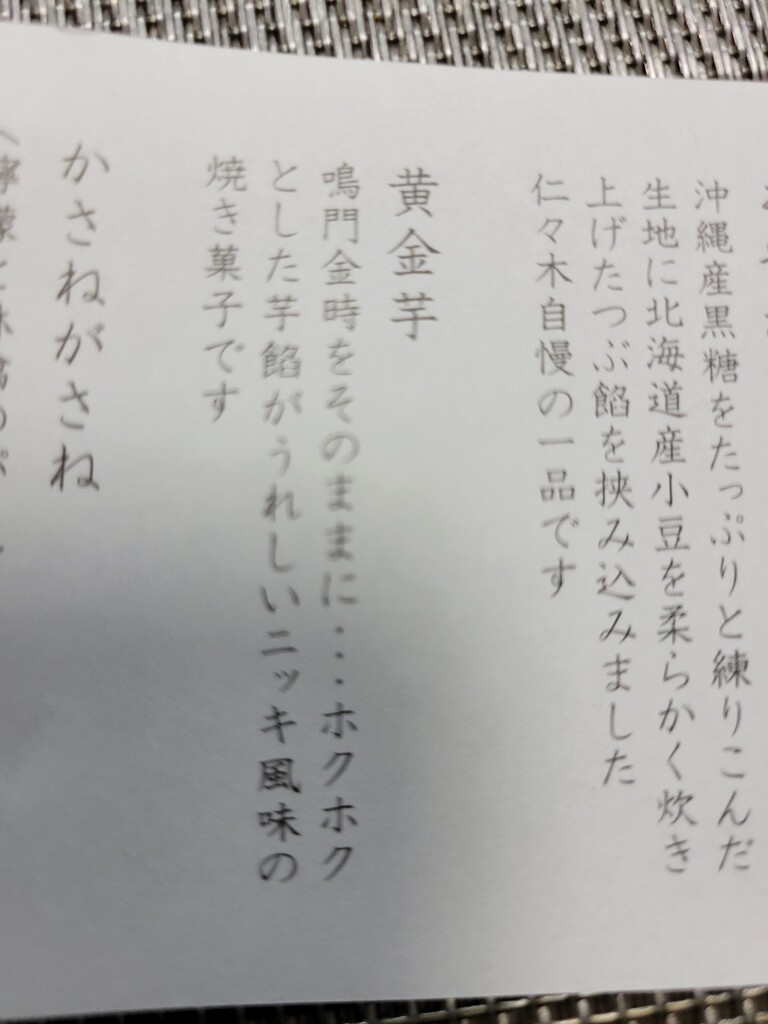 沖縄産黒糖をたっぷりと練りこんだ
生地に北海道産小豆を柔らかく炊き
上げたつぶ餡を挟み込みました
仁々木自慢の一品です
黄金芋
鳴門金時をそのままに・・・ホクホク
とした芋餡がうれしいニッキ風味の
焼き菓子です
かさねがさね